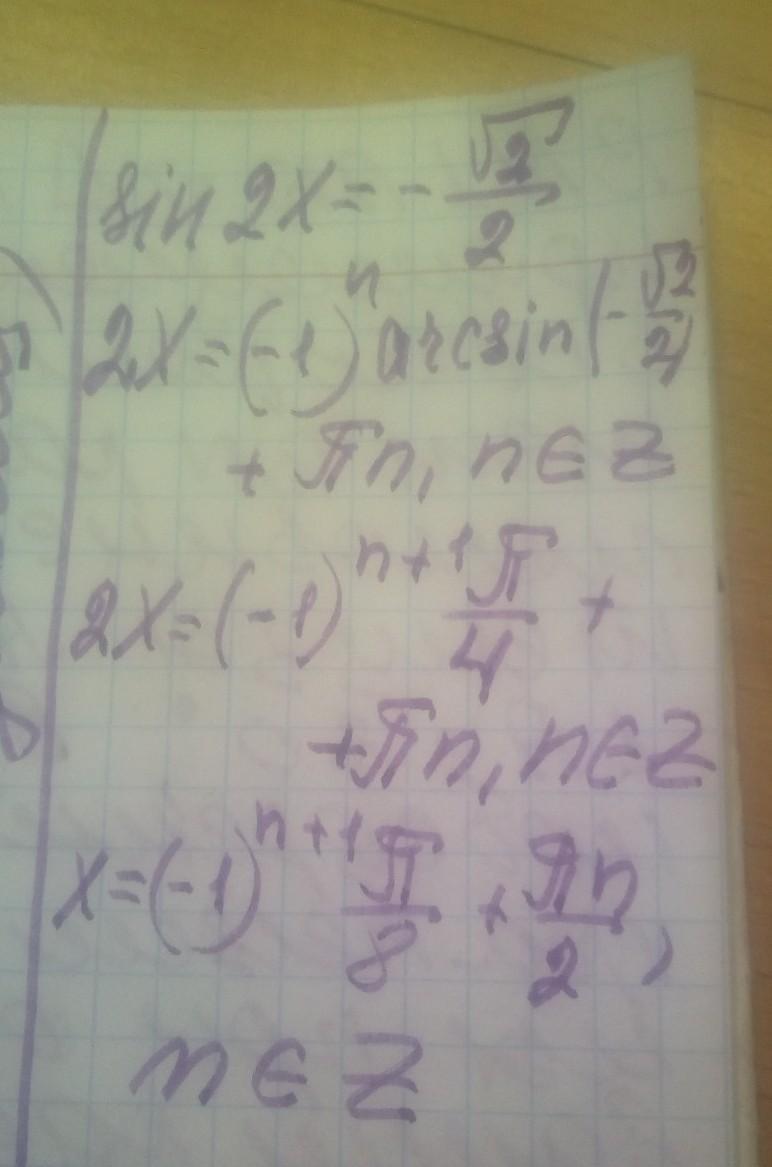 sin 2x = - √2/2
2x = (-1)^n arcsin(-√2/2)
+ πn, n ∈ Z
2x = (-1)^(n+1) π/4 +
+ πn, n ∈ Z
x = (-1)^(n+1) π/8 + πn/2,
n ∈ Z